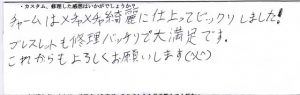 ・カスタム、修理した感想はいかがでしょうか?
チャームはメチャメチャ綺麗に仕上ってビックリしました!
ブレスレットも修理バッチリで大満足です。
これからもよろしくお願いします(^x^)